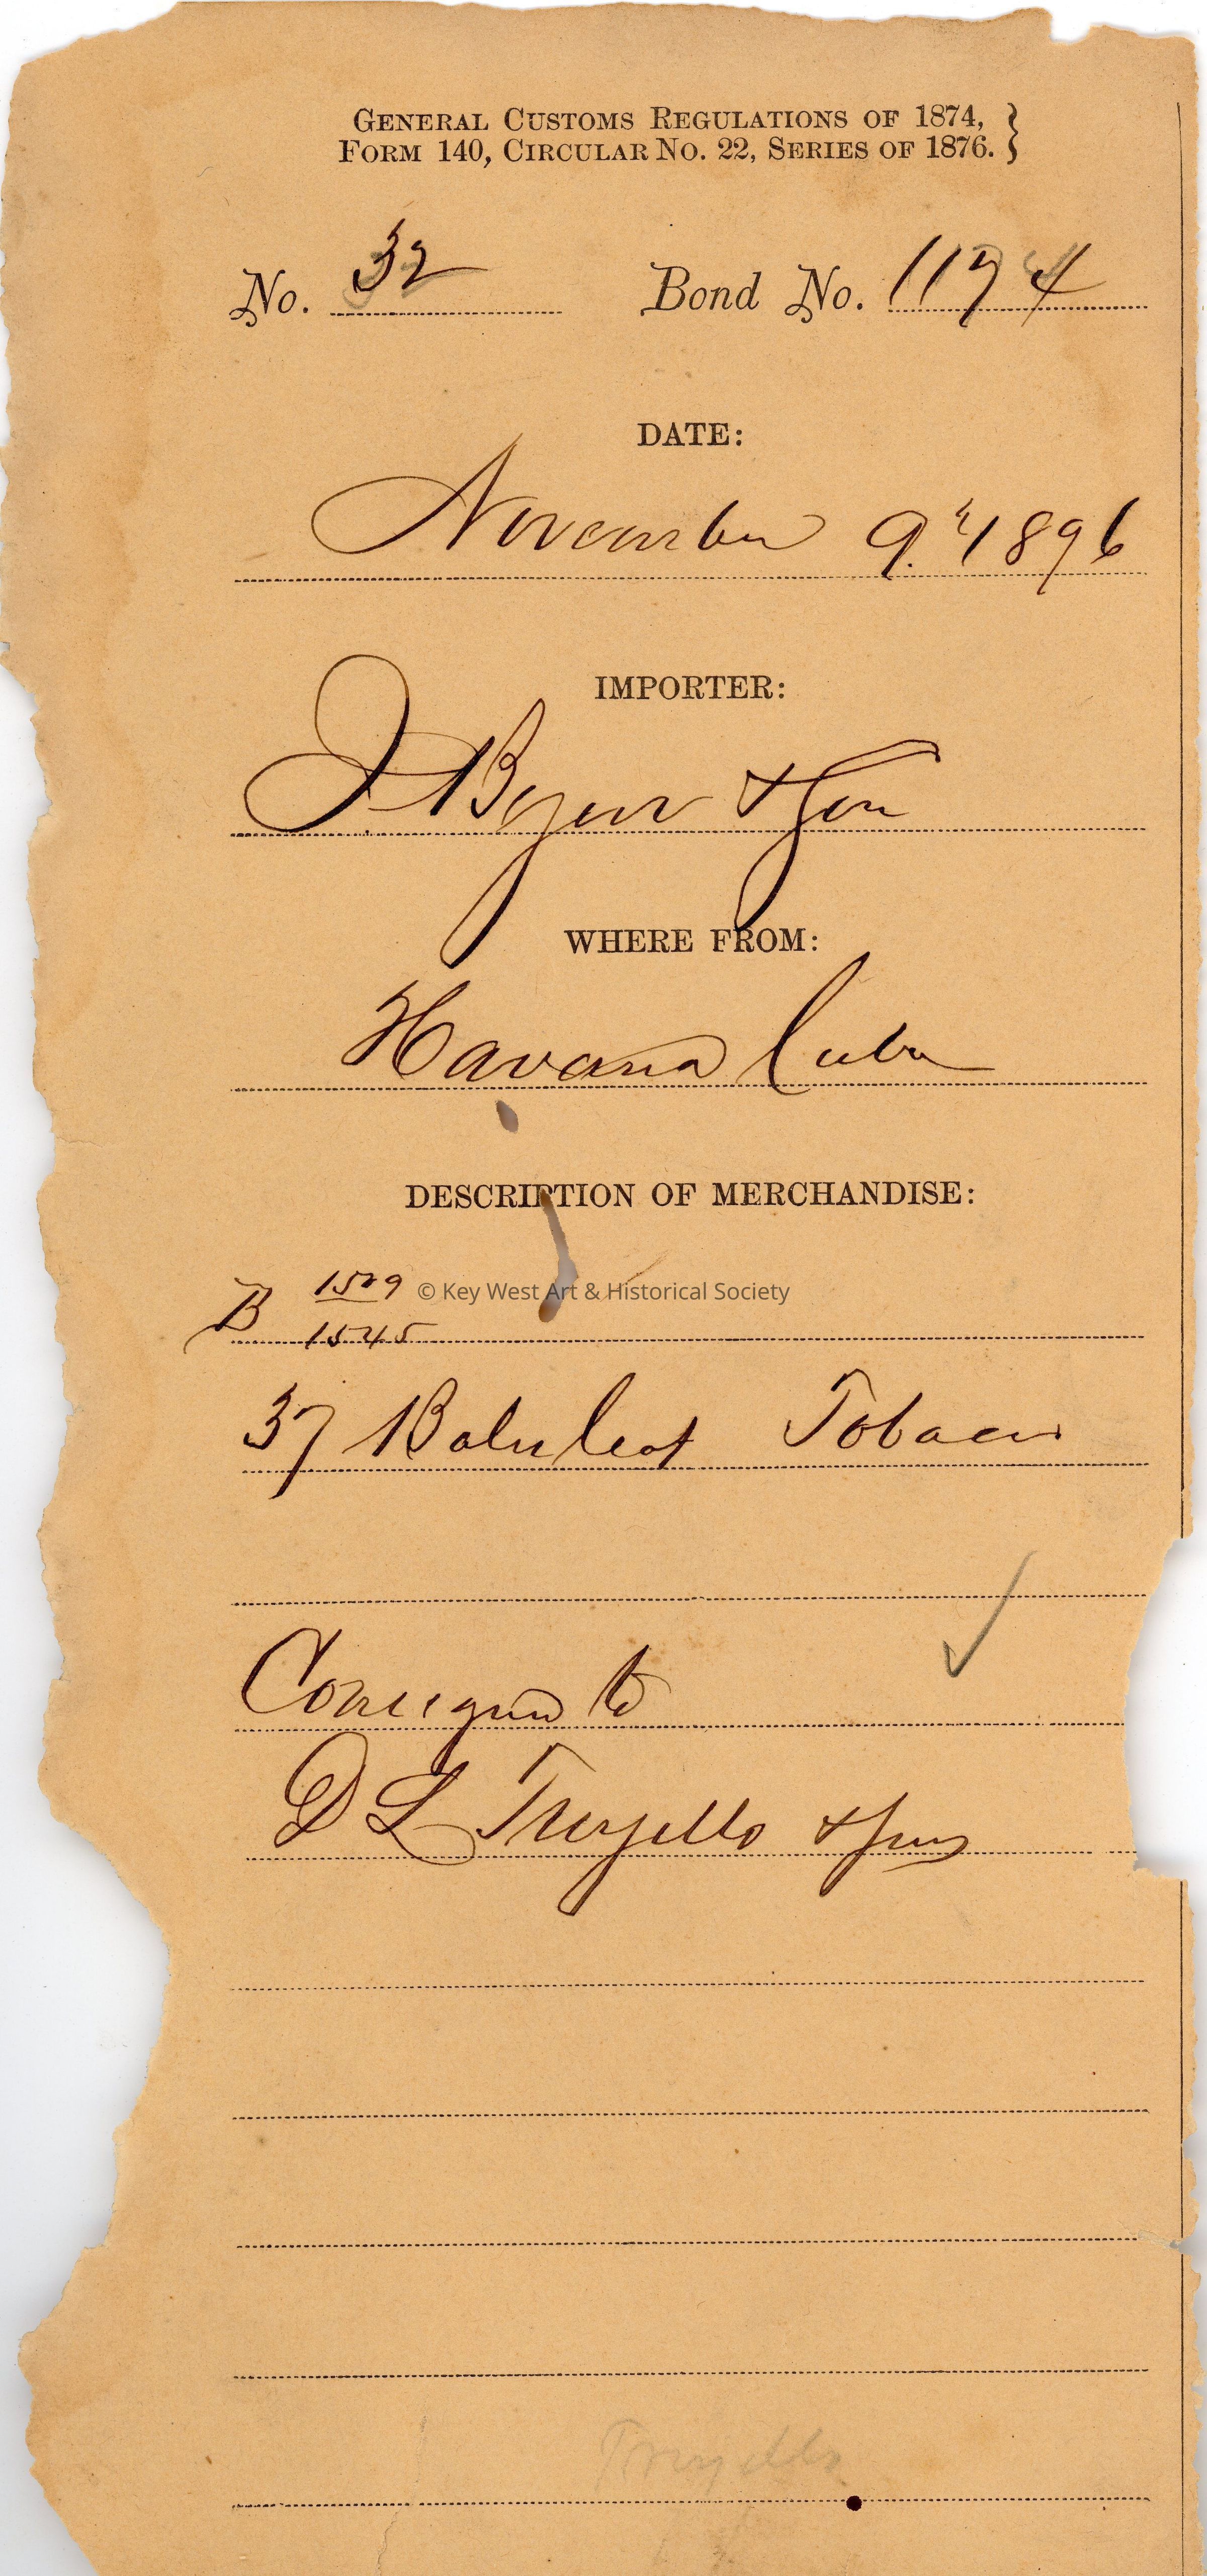 GENERAL CUSTOMS REGULATIONS OF 1874, }
FORM 140, CIRCULAR NO. 22, SERIES OF 1876. }
No. 32 Bond No. 1174
DATE:
November 9th 1896
IMPORTER:
& Son
WHERE FROM:
Havana Cuba
DESCRIPTION OF MERCHANDISE:
B 1509
© Key West Art & Historical Society
1545
37 Bales leaf Tobacco
Consigned to
D L Trujillo & Sons
Trujillo